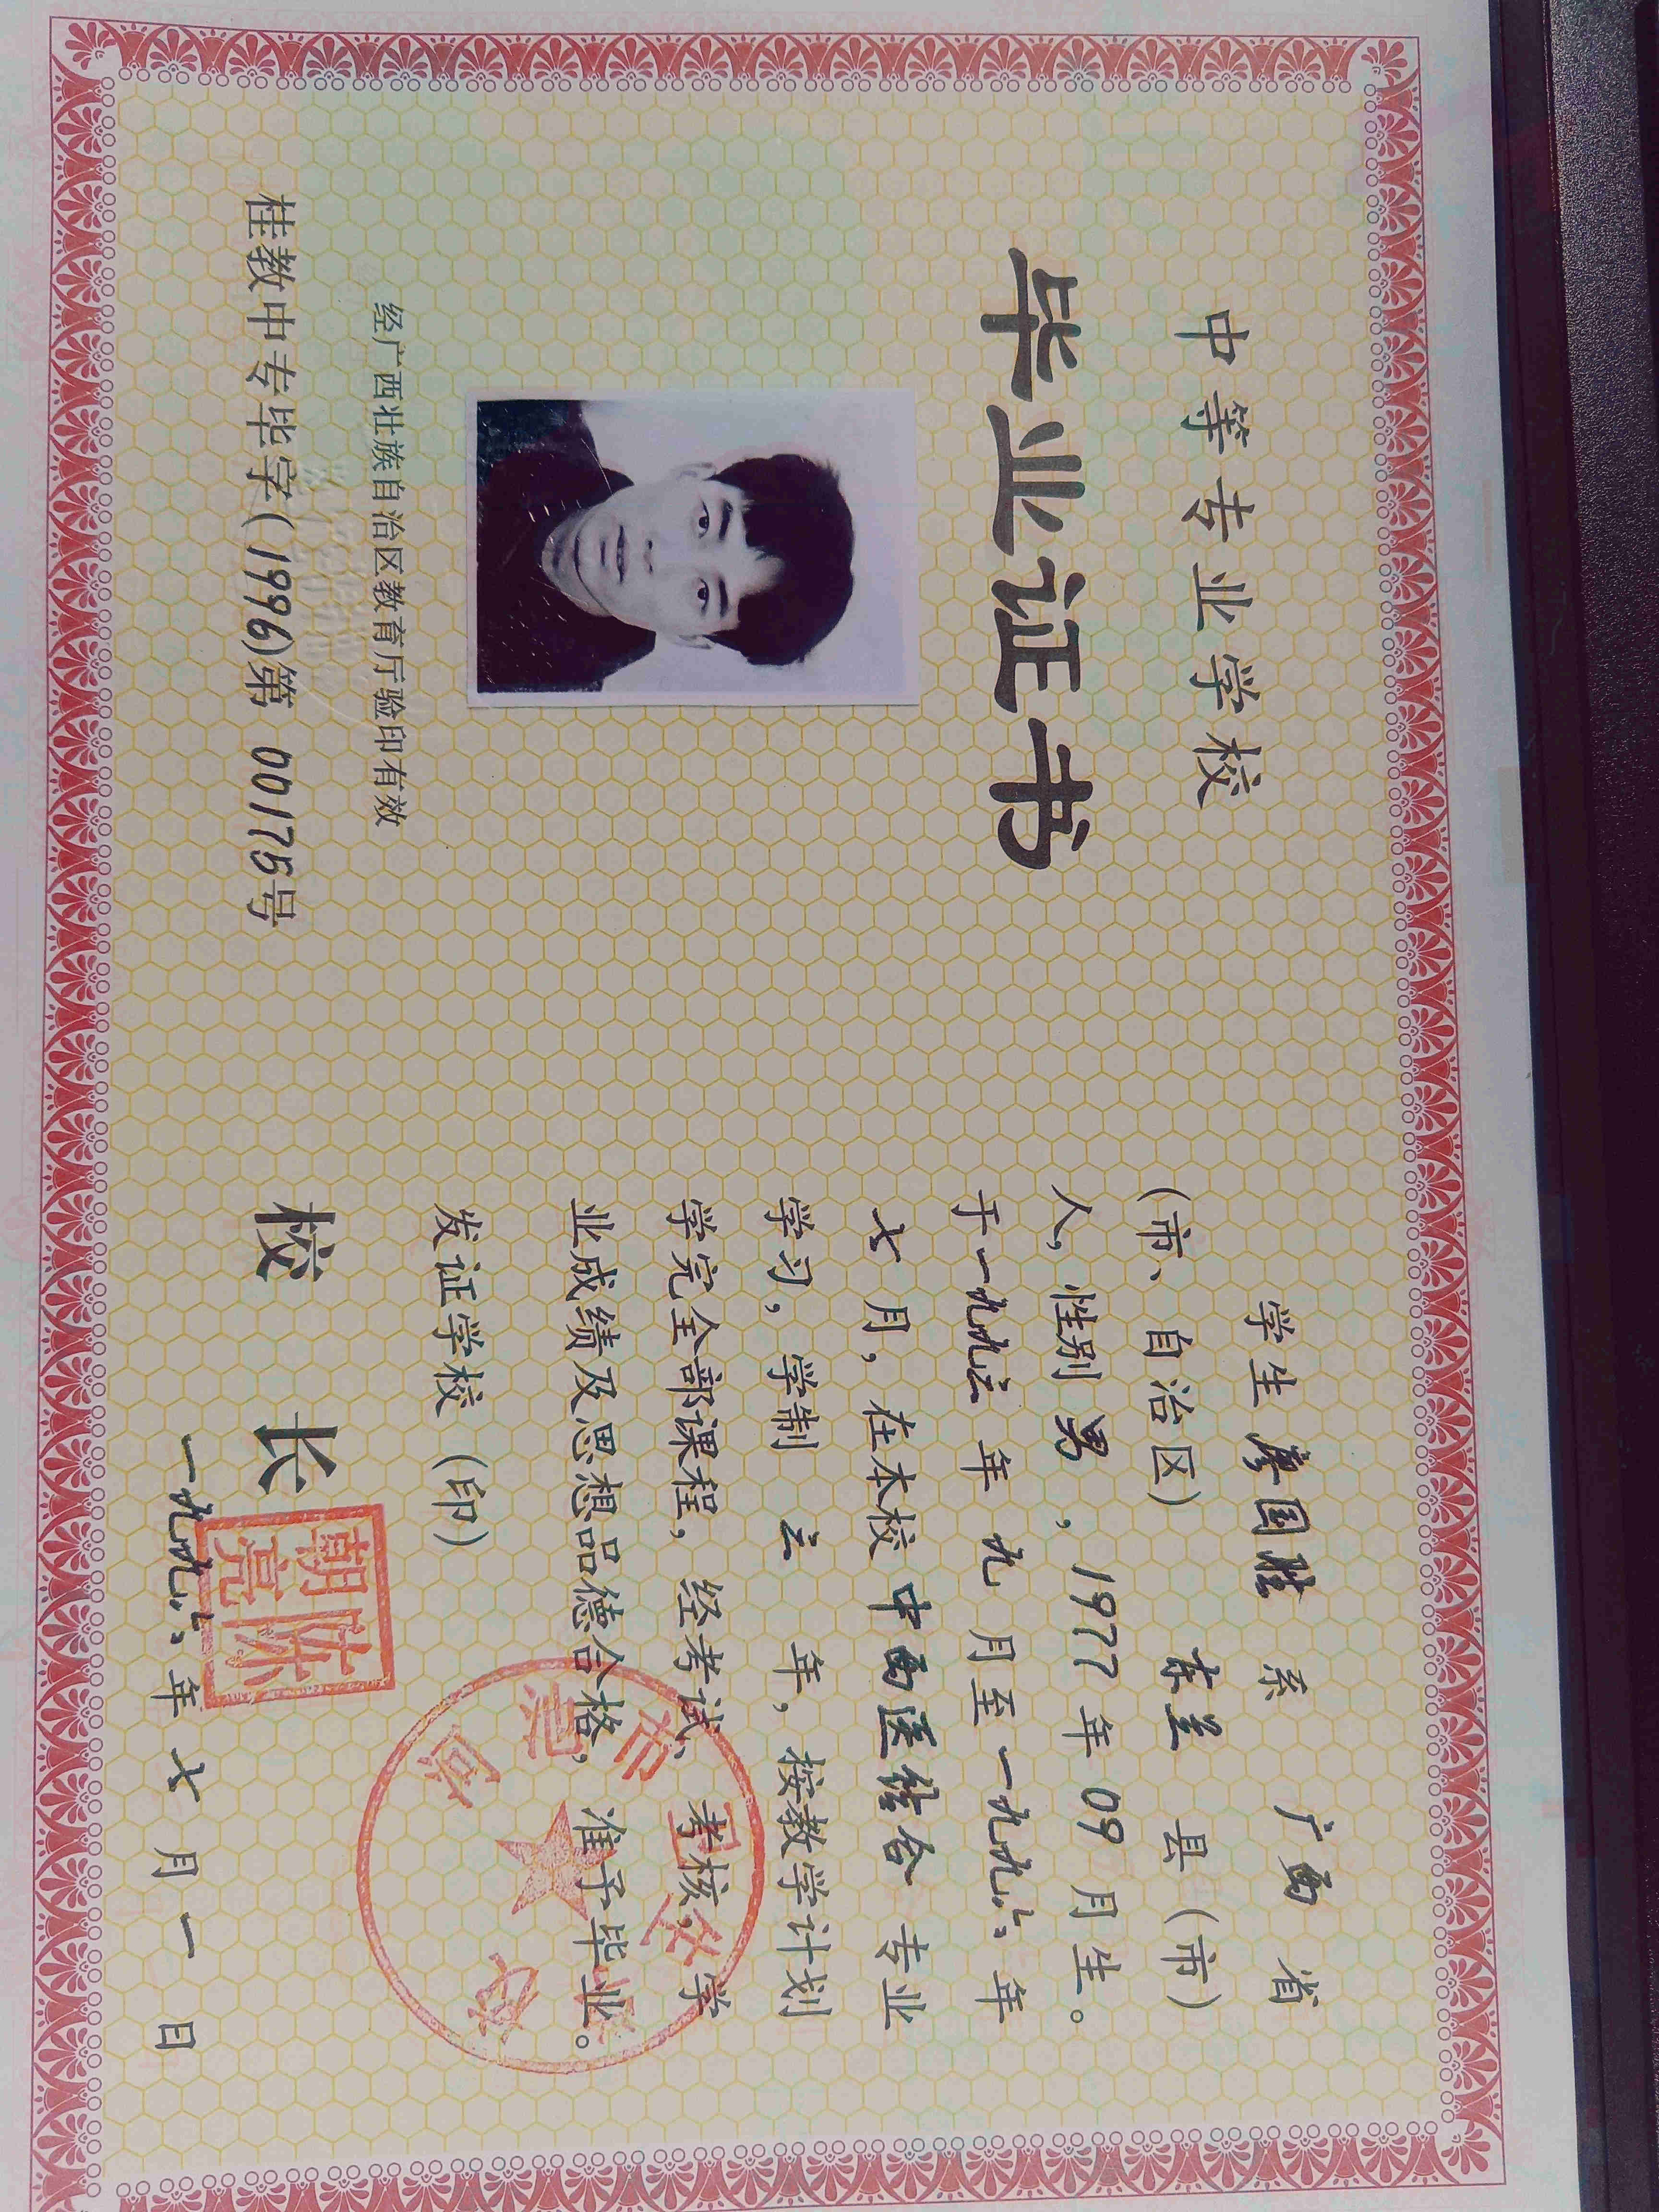 中等专业学校
毕业证书
经广西壮族自治区教育厅验印有效
桂教中专毕字(1996)第 001175号
学生 国胜 系 广西 省
(市、自治区) 东兰 县(市)
人,性别 男 ,1977 年 09 月生。
于一九九三 年 九 月至 一九九六 年
七 月,在本校 中西医结合 专业
学习,学制 三 年,按教学计划
学完全部课程,经考试、考核,学
业成绩及思想品德合格,准予毕业。
发证学校(印)
校 长
陈朝亮
一九九六 年 七 月 一 日